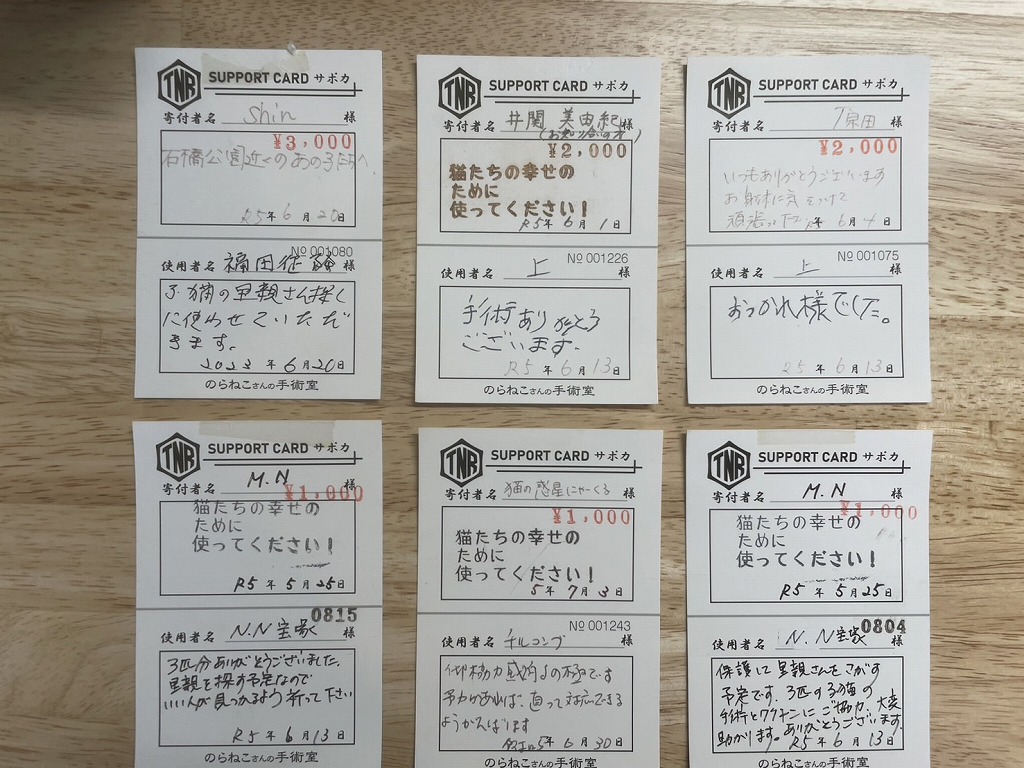 TNR SUPPORT CARD サポカ
寄付者名 Shin 様
¥3,000
石橋公園近くのあの子たちへ
R5年 6月 20日
No 001080
使用者名 福田 様
子猫の里親さん探し
に使わせていただ
きます。
2023年 6月 20日
のらねこさんの手術室
TNR SUPPORT CARD サポカ
寄付者名 井関 美由紀 様
(お知り合いの方)
¥2,000
猫たちの幸せの
ために
使ってください!
R5年 6月 1日
No 001226
使用者名 上 様
手術ありがとう
ございます。
R5年 6月 13日
のらねこさんの手術室
TNR SUPPORT CARD サポカ
寄付者名 原田 様
¥2,000
いつもありがとうございます
お身体に気をつけて
頑張って下 年 6月 4日
No 001075
使用者名 上 様
おつかれ様でした。
R5年 6月 13日
のらねこさんの手術室
TNR SUPPORT CARD サポカ
寄付者名 M.N 様
¥1,000
猫たちの幸せの
ために
使ってください!
R5年 5月 25日
0815
使用者名 N.N宝塚 様
3匹分ありがとうございました。
里親を探す予定なので
いい人が見つかるよう祈って下さい
R5年 6月 13日
のらねこさんの手術室
TNR SUPPORT CARD サポカ
寄付者名 猫の惑星にゃーくる 様
¥1,000
猫たちの幸せの
ために
使ってください!
5年 7月 3日
No 001243
使用者名 チルコンプ 様
御協力感謝の極です
5年 6月 30日
のらねこさんの手術室
TNR SUPPORT CARD サポカ
寄付者名 M.N 様
¥1,000
猫たちの幸せの
ために
使ってください!
R5年 5月 25日
0804
使用者名 N.N宝塚 様
保護して里親さんをさがす
予定です。3匹の子猫の
手術とワクチンにご協力、大変
助かります。ありがとうございます。
R5年 6月 13日
のらねこさんの手術室